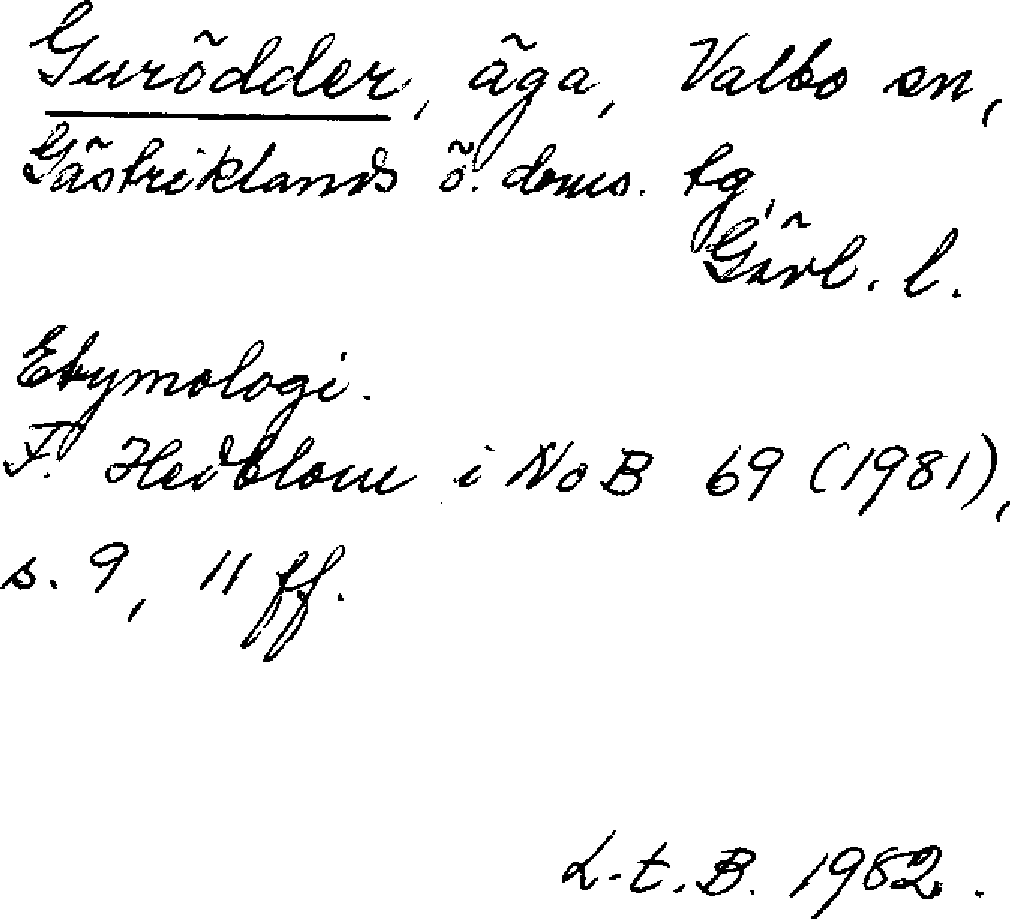 Gurödder, äga, Valbo sn,
Gästriklands ö. doms. tg,
Gävl. l.
Etymologi.
F. Hedblom i NoB 69 (1981),
s. 9, 11 ff.
L.t.B. 1982.